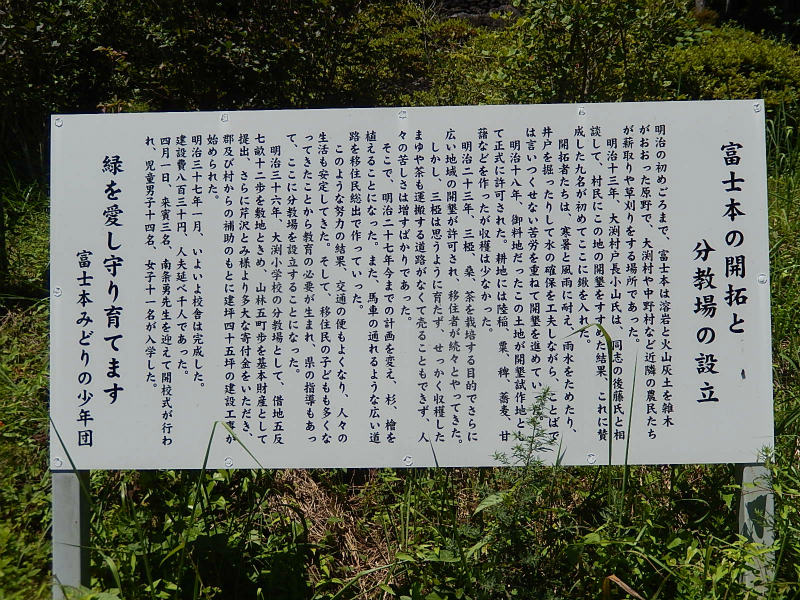 富士本の開拓と
分教場の設立
明治の初めごろまで、富士本は溶岩と火山灰土を雑木
がおおった原野で、大渕村や中野村など近隣の農民たち
が薪取りや草刈りをする場所であった。
明治十三年、大渕村戸長小山氏は、同志の後藤氏と相
談して、村民にこの地の開墾をすすめた結果、これに賛
成した九名が初めてここに鍬を入れた。
開拓者たちは、寒暑と風雨に耐え、雨水をためたり、
井戸を掘ったりして水の確保を工夫しながら、ことばで
は言いつくせない苦労を重ねて開墾を進めていった。
明治十八年、御料地だったこの土地が開墾試作地とし
て正式に許可された。耕地には陸稲、粟、稗、蕎麦、甘
藷などを作ったが収穫は少なかった。
明治二十三年、三椏、桑、茶を栽培する目的でさらに
広い地域の開墾が許可され、移住者が続々とやってきた。
しかし、三椏は思うように育たず、せっかく収穫した
まゆや茶も運搬する道路がなくて売ることもできず、人
々の苦しさは増すばかりであった。
そこで、明治二十七年今までの計画を変え、杉、檜を
植えることになった。また、馬車の通れるような広い道
路を移住民総出で作っていった。
このような努力の結果、交通の便もよくなり、人々の
生活も安定してきた。そして、移住民の子どもも多くな
ってきたことから教育の必要が生まれ、県の指導もあっ
て、ここに分教場を設立することになった。
明治三十六年、大渕小学校の分教場として、借地五反
七畝十二歩を敷地ときめ、山林五町歩を基本財産として
提出、さらに芹沢とみ様より多大な寄付金をいただき、
郡及び村からの補助のもとに建坪四十五坪の建設工事が
始められた。
明治三十七年一月、いよいよ校舎は完成した。
建設費八百三十円、人夫延べ千人であった。
四月一日、来賓三名、南条勇先生を迎えて開校式が行わ
れ、児童男子十四名、女子十一名が入学した。
緑を愛し守り育てます
富士本みどりの少年団